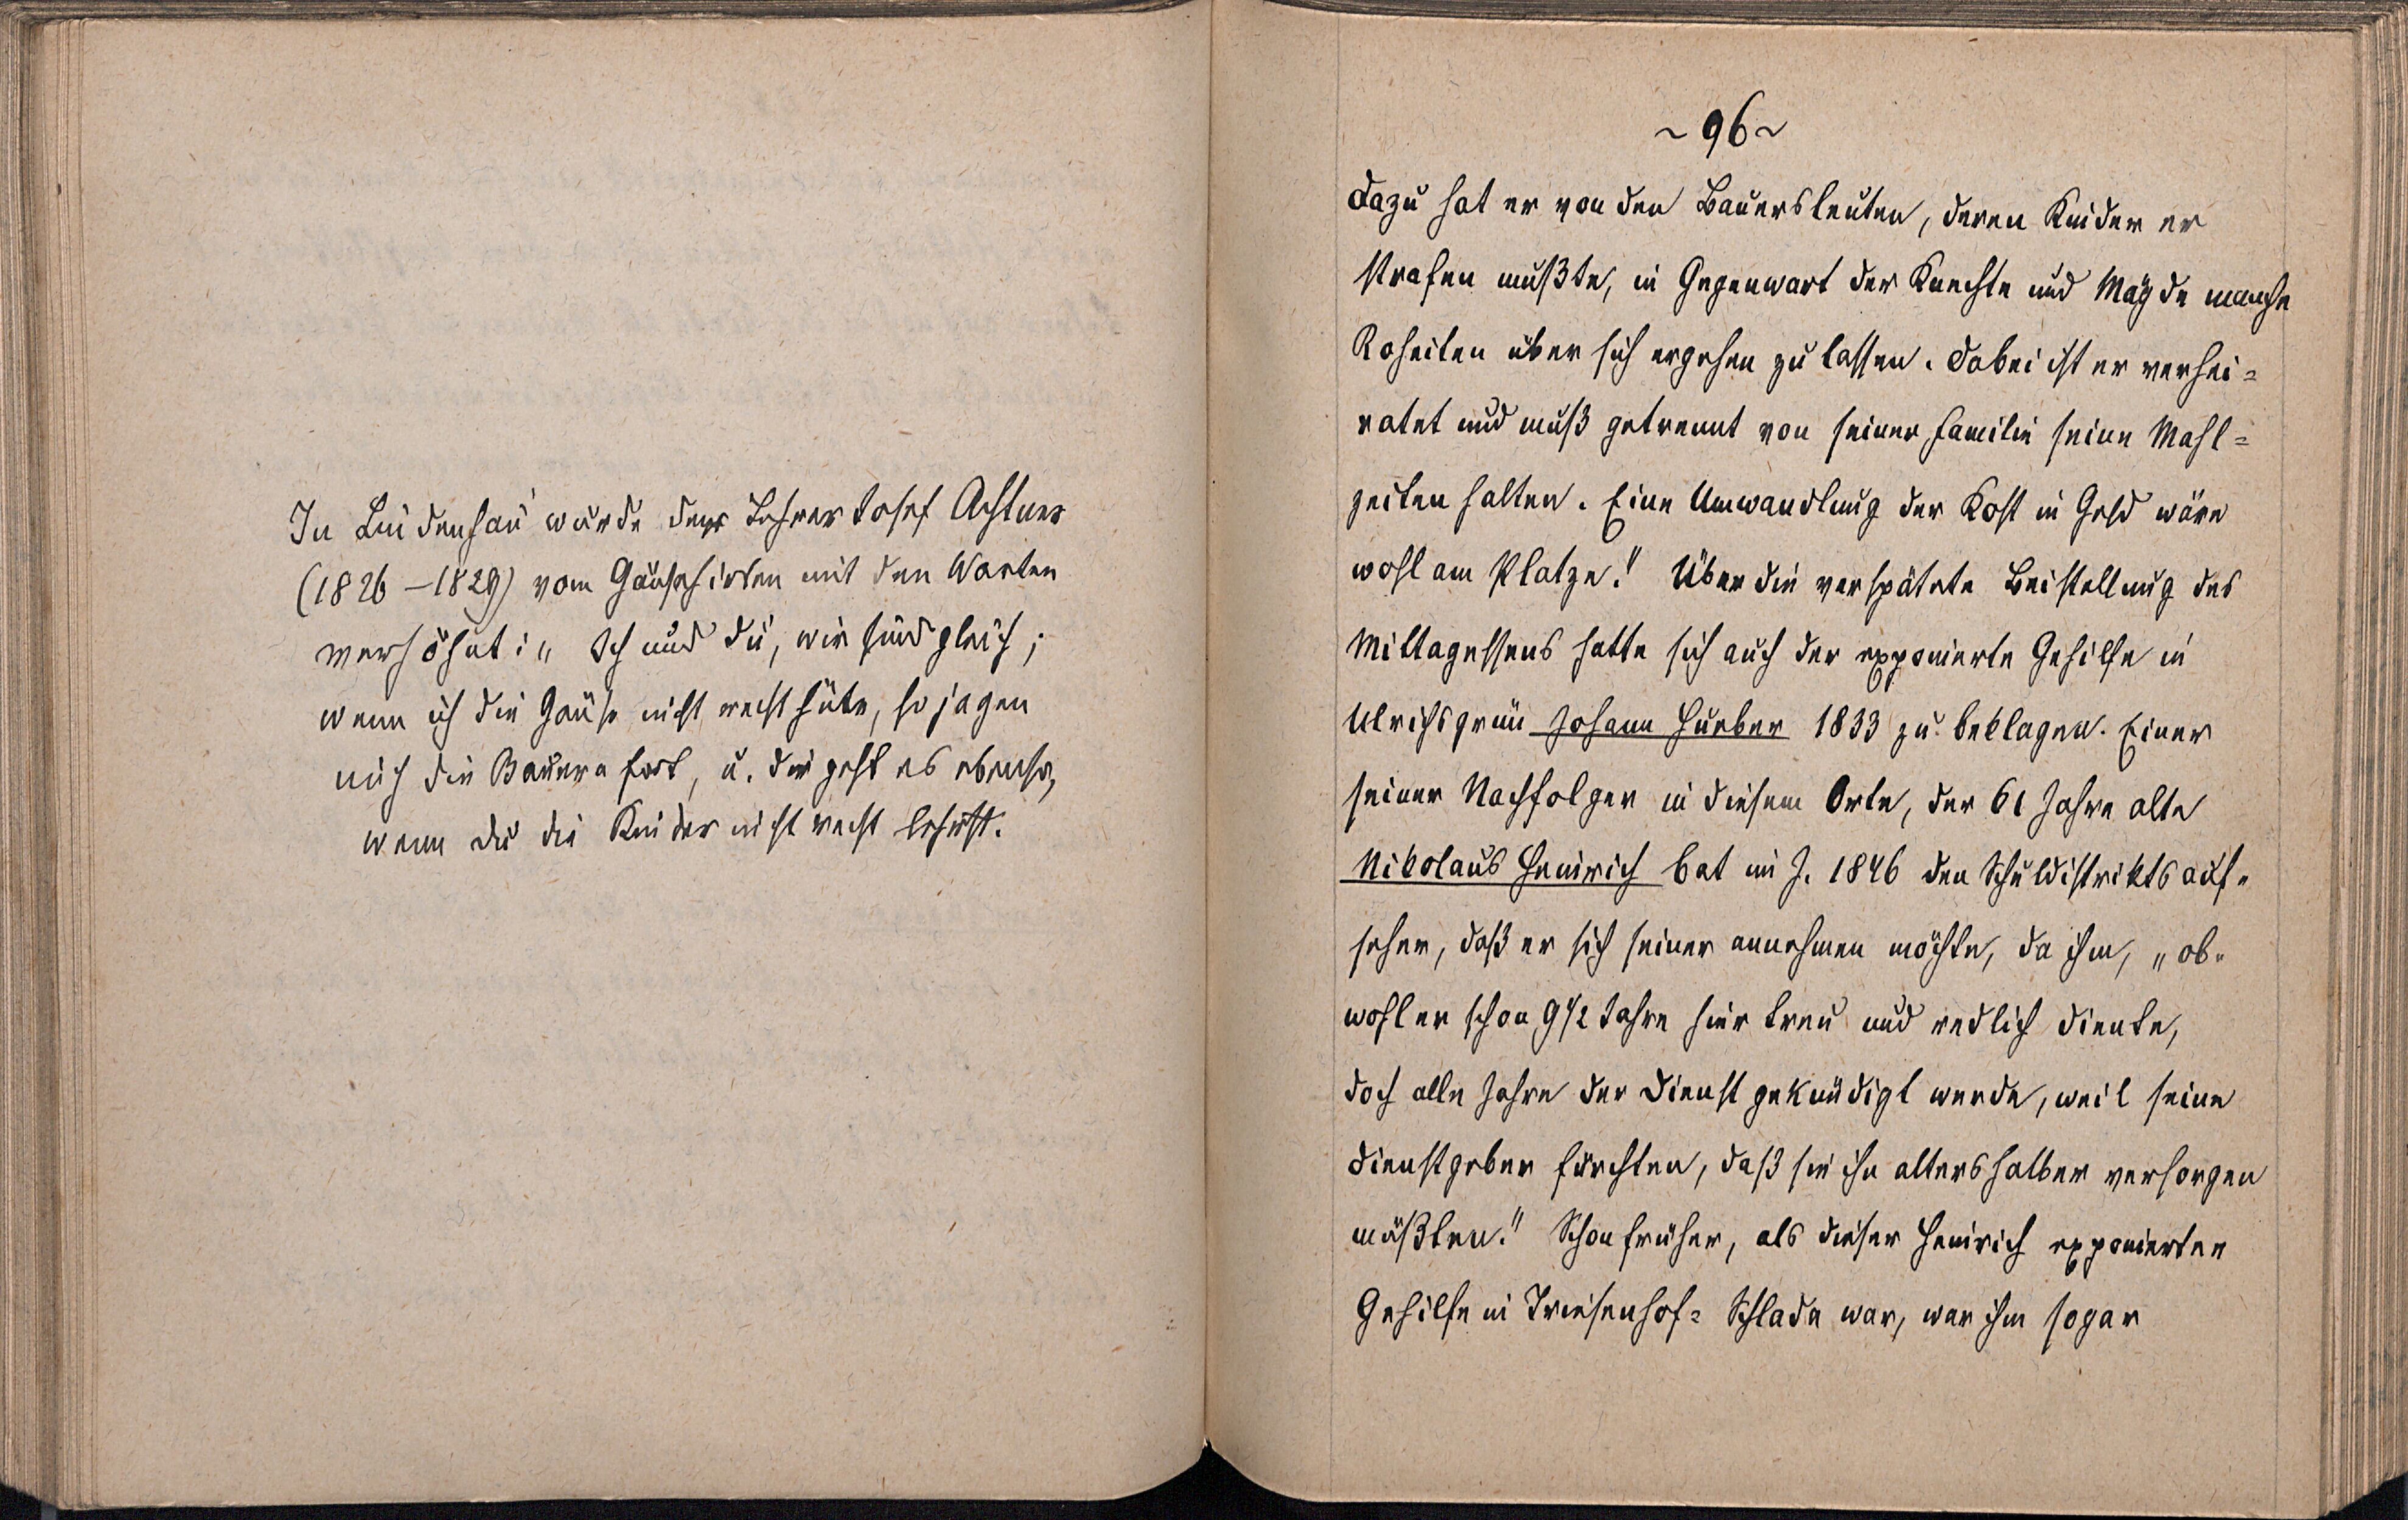 In Lindenhau wurde der Lehrer Josef Achtner
(1826 – 1829) vom Gänsehirten mit den Worten
verhöhnt: „Ich und du, wir sind gleich;
wenn ich die Gänse nicht recht hüte, so jagen
mich die Bauern fort, u. dir geht es ebenso,
wenn du die Kinder nicht recht lehrst.
~ 96 ~
Dazu hat er von den Bauersleuten, deren Kinder er
strafen mußte, in Gegenwart der Knechte und Mägde manche
Roheiten über sich ergehen zu lassen. Dabei ist er verhei=
ratet und muß getrennt von seiner Familie seine Mahl=
zeiten halten. Eine Umwandlung der Kost in Geld wäre
wohl am Platze." Über die verspätete Beistellung des
Mittagessens hatte sich auch der exponierte Gehilfe in
Ulrichsgrün Johann Hueber 1833 zu beklagen. Einer
seiner Nachfolger in diesem Orte, der 61 Jahre alte
Nikolaus Heinrich bat im J. 1846 den Schuldistriktsauf=
seher, daß er sich seiner annehmen möchte, da ihm, „ob=
wohl er schon 9 1/2 Jahre hier treu und redlich diente,
doch alle Jahre der Dienst gekündigt werde, weil seine
Dienstgeber fürchten, daß sie ihn altershalber versorgen
müßten." Schon früher, als dieser Heinrich exponierter
Gehilfe in Triesenhof= Schlada war, war ihm sogar